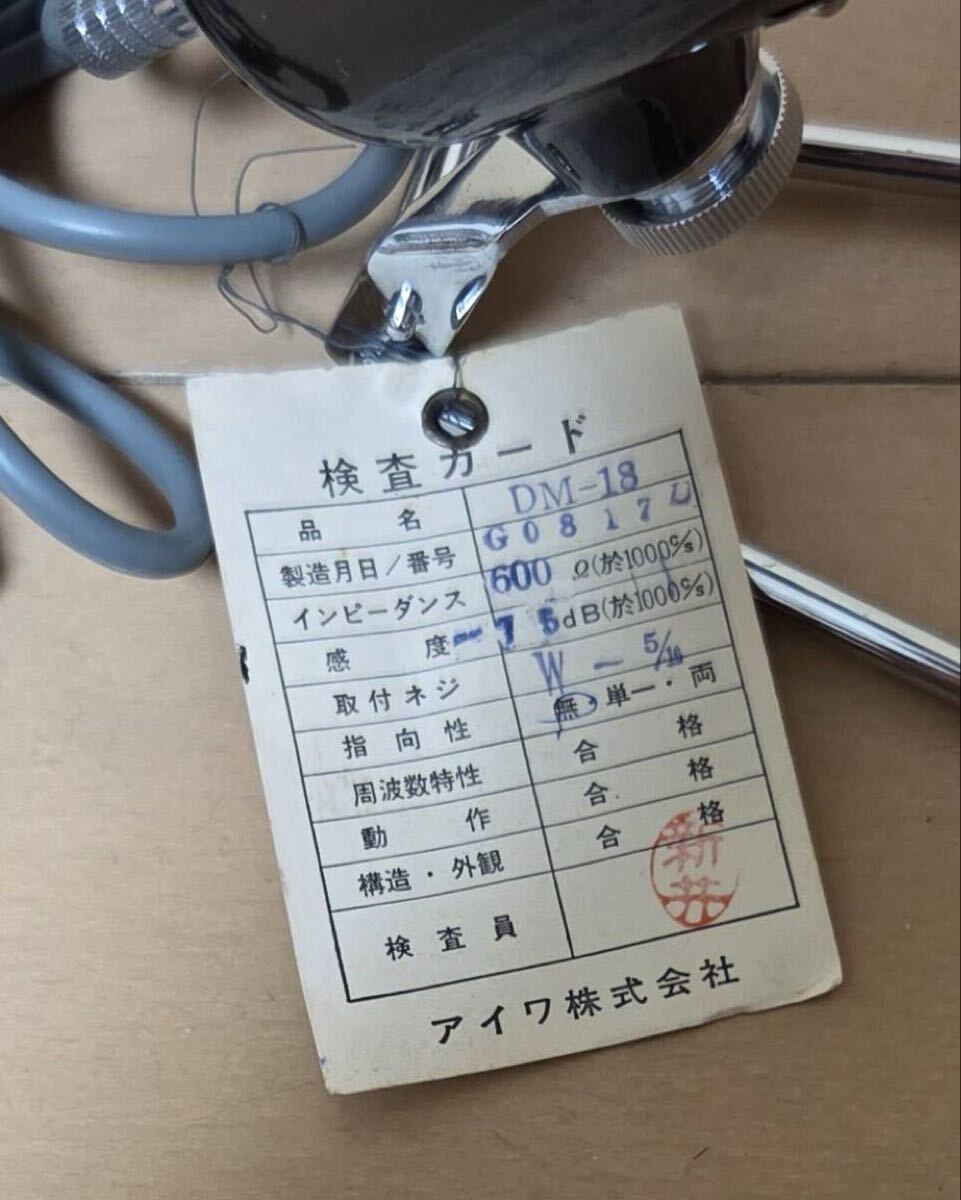 検査カード
品名 DM-18
製造月日/番号 G0817
インピーダンス 600 Ω(於1000c/s)
感度 -75dB(於1000c/s)
取付ネジ W-5/16
指向性 無・単一・両
周波数特性 合格
動作 合格
構造・外観 合格
検査員 新井
アイワ株式会社